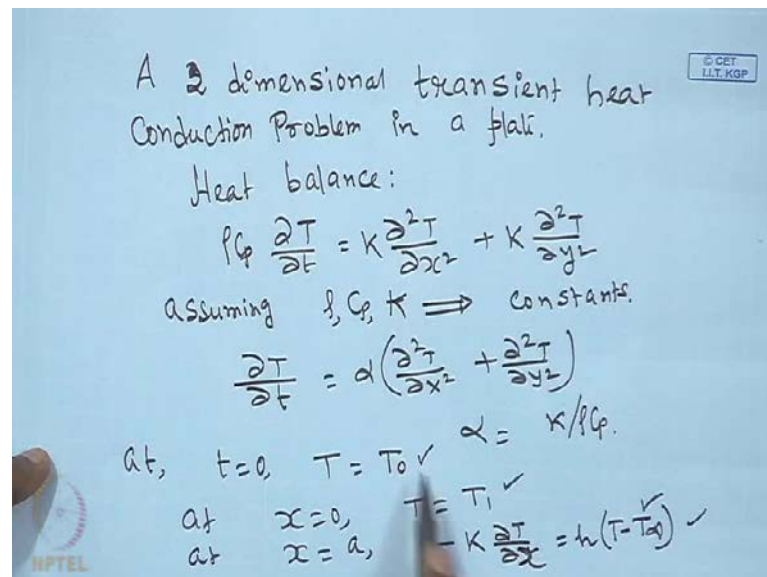 A 2 dimensional transient heat
© CET
I.I.T. KGP
Conduction Problem in a plate.
Heat balance:
ρCp ∂T/∂t = K ∂²T/∂x² + K ∂²T/∂y²
assuming ρ, Cp, K ⟹ constants.
∂T/∂t = α(∂²T/∂x² + ∂²T/∂y²)
α = K/ρCp.
at, t=0, T = T₀ ✓
at x=0, T = T₁ ✓
at x=a, -K ∂T/∂x = h(T-T∞) ✓
NPTEL